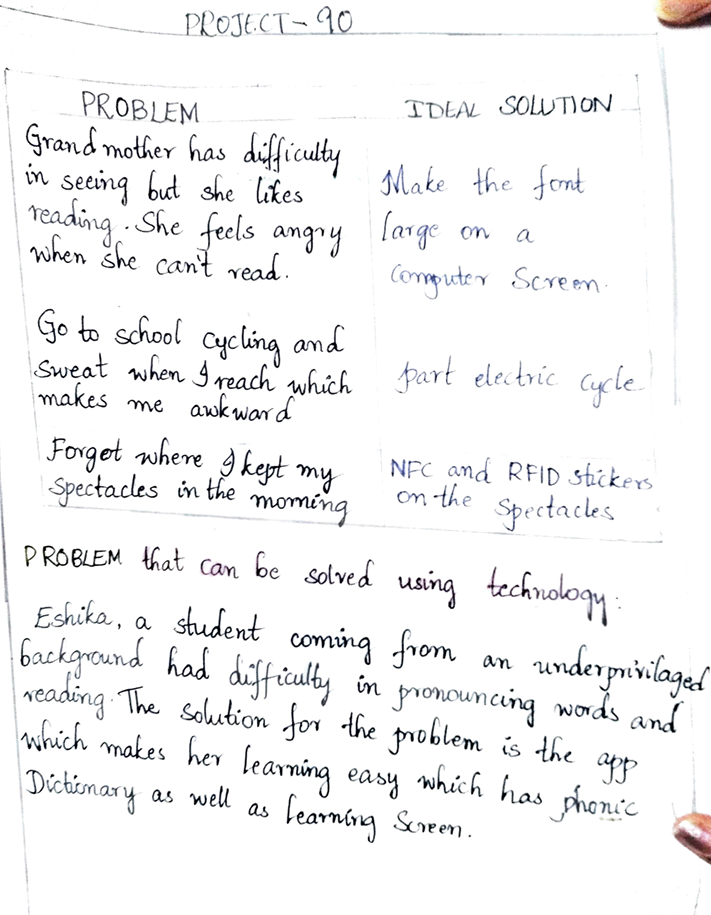 PROJECT-90
PROBLEM
Grandmother has difficulty
in seeing but she likes
reading. She feels angry
when she can't read.
IDEAL SOLUTION
Make the font
large on a
Computer Screen.
Go to school cycling and
Sweat when I reach which
makes me awkward
part electric cycle
Forget where I kept my
Spectacles in the morning
NFC and RFID stickers
on the Spectacles
PROBLEM that can be solved using technology:
Eshika, a student coming from an underprivilaged
background had difficulty in pronouncing words and
reading. The solution for the problem is the app
which makes her learning easy which has phonic
Dictionary as well as learning Screen.